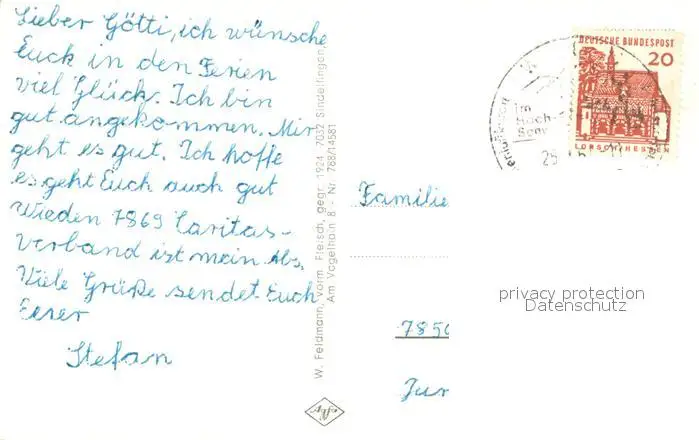 Lieber Götti, ich wünsche
Euch in den Ferien
viel Glück. Ich bin
gut angekommen. Mir
geht es gut. Ich hoffe
es geht Euch auch gut
Wieden 7869 Caritas-
verband ist mein Abs.
Viele Grüße sendet Euch
Eeer
Stefan
W. Feldmann, vorm. Fleisch, gegr. 1924 7032 Sindelfingen,
Am Vogelhain 8 - Nr. 788/14581
Agfa
DEUTSCHE BUNDESPOST
20
LORSCH/HESSEN
im
Hoch-
25
Familie
7850
privacy protection
Datenschutz